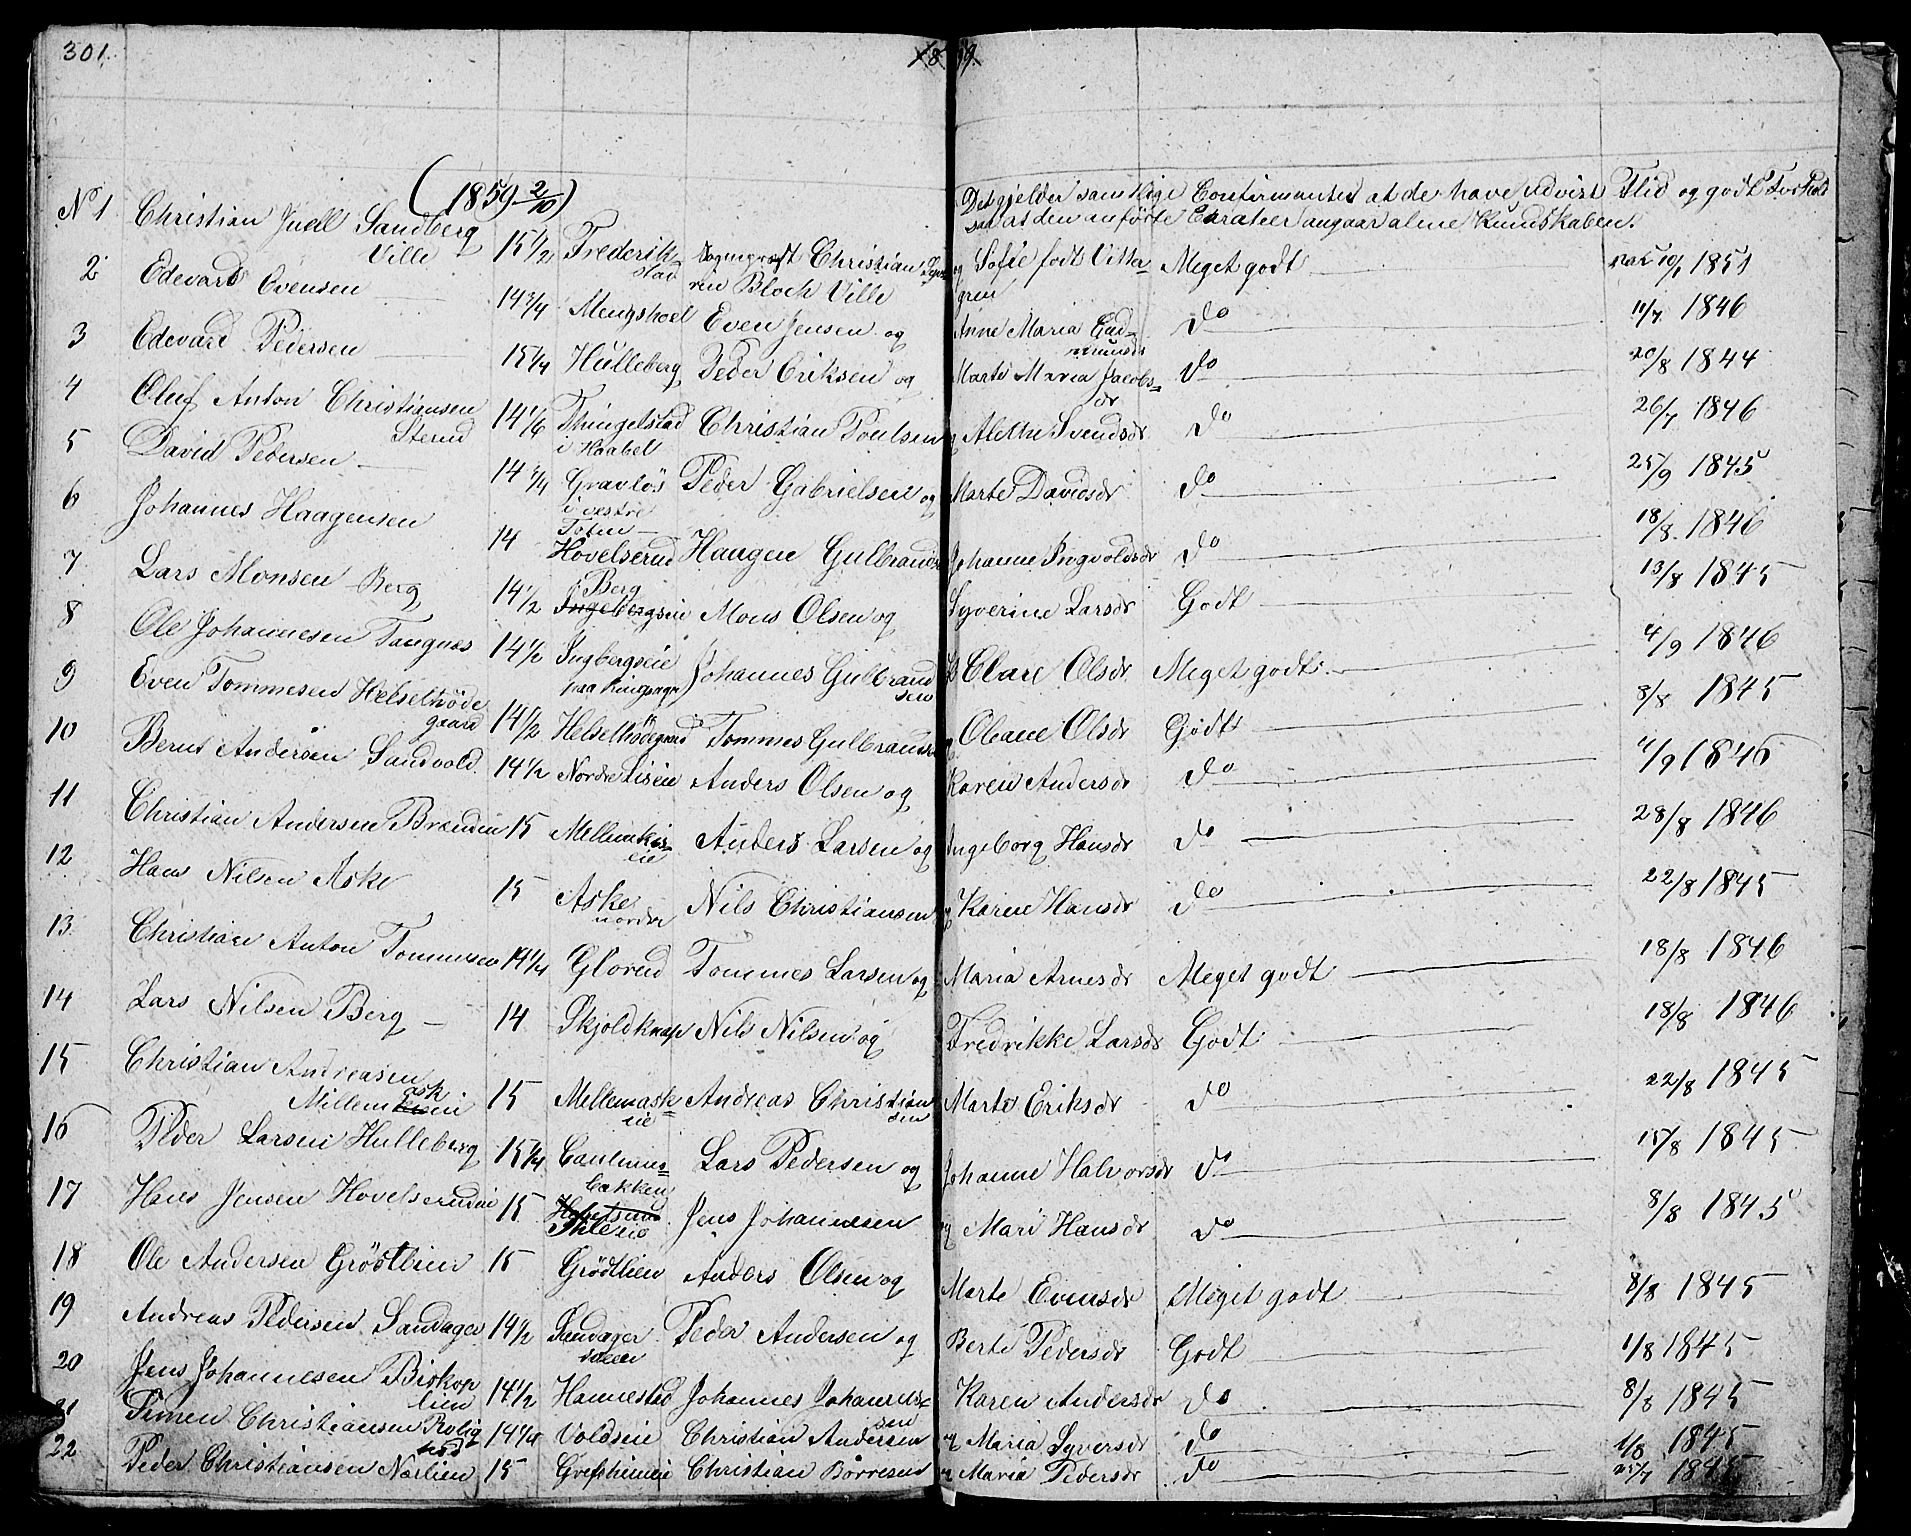 301.
1859.
(1859 2/10)
Det gjelder samtlige Confirmanter at de have udvist Flid og godt Forhold
saa at den anførte Carateer angaar alene Kundskaben.
No 1 Christian Juell Sandberg Ville 15 1/2 Frederikstad Christian Bloch Ville og Sofie født Vittergren Meget godt 1851
2 Edevard Evensen 14 3/4 Mengshoel Even Jensen og Anne Maria Do 11/7 1846
3 Edevard Pedersen 15 1/4 Hulleberg Peder Eriksen og Marte Maria Jacobsdr Do 20/8 1844
4 Oluf Anton Christiansen Sterud 14 1/6 Thingelstad i Haabet Christian Poulsen og Alethe Svendsdr Do 26/7 1846
5 David Pedersen 14 3/4 Gravlös i vestre Toten Peder Gabrielsen og Marte Davidsdr Do 25/9 1845
6 Johannes Haagensen 14 Hovelserud Haugen Gulbrands Johanne Ingvoldsdr Do 18/8 1846
7 Lars Monsen Berg 14 1/2 Berg Ingebergseie Mons Olsen og Syverine Larsdr Godt 13/8 1845
8 Ole Johannesen Tangnes 14 1/2 Ingbergseie paa Ringsager Johannes Gulbrandsen og Oleare Olsdr Meget godt 4/9 1846
9 Even Tommesen Helsethödegaard 14 1/2 Helsethödegaard Tommes Gulbrands og Oleane Olsdr Godt 8/8 1845
10 Bernt Andersen Sandvold 14 1/2 Nordre Liseie Anders Olsen og Karen Andersdr Do 4/9 1846
11 Christian Andersen Brænden 15 Mellem eie Anders Larsen og Ingeborg Hansdr Do 28/8 1846
12 Hans Nilsen Aske 15 Aske nordre Nils Christiansen og Karen Hansdr Do 22/8 1845
13 Christian Anton Tommesen 14 1/4 Glorud Tommes Larsen og Maria Arnesdr Meget godt 18/8 1846
14 Lars Nilsen Berg 14 Skjoldknap Nils Nilsen og Fredrikke Larsdr Godt 18/8 1846
15 Christian Andreasen Millemaskeie 15 Mellemaskeeie Andreas Christiansen Marte Eriksdr Do 22/8 1845
16 Peder Larsen Hulleberg 15 1/4 bakken Lars Pedersen og Johanne Halvorsdr Do 15/8 1845
17 Hans Jensen Hovelserudeie 15 Hovelsrud Jens Johannesen og Mari Hansdr Do 8/8 1845
18 Ole Andersen Grödtlien 15 Grödtlien Anders Olsen og Marte Evensdr Meget godt 8/8 1845
19 Andreas Pedersen Sandager 14 1/2 Sandager Peder Andersen og Berte Pedersdr Godt 1/8 1845
20 Jens Johannesen Biskoplien 14 1/2 Hannestad Johannes Johannessen Karen Andersdr Do 8/8 1845
21 Simen Christiansen Rolighed 14 1/4 Voldseie Christian Andersen og Maria Syversdr Do 1/8 1845
22 Peder Christiansen Norlien 15 Grefsheimeie Christian Börresen og Maria Pedersdr Do 25/7 1845